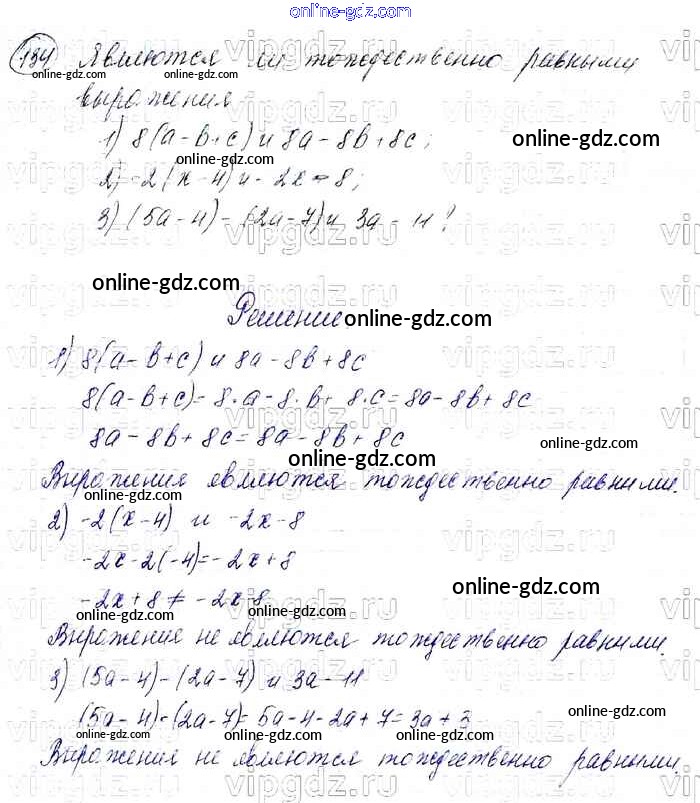 online-gdz.com
134 Являются ли тождественно равными
выражения
1) 8(a-b+c) и 8a-8b+8c;
online-gdz.com
online-gdz.com
2) -2(x-4) и -2x-8;
online-gdz.com
3) (5a-4)-(2a-7) и 3a-11?
online-gdz.com
online-gdz.com
Решение
online-gdz.com
1) 8(a-b+c) и 8a-8b+8c
8(a-b+c)=8·a-8·b+8·c=8a-8b+8c
8a-8b+8c=8a-8b+8c
online-gdz.com
online-gdz.com
Выражения являются тождественно равными.
online-gdz.com
2) -2(x-4) и -2x-8
-2x-2(-4)=-2x+8
online-gdz.com
-2x+8≠-2x-8
online-gdz.com
Выражение не являются тождественно равными.
online-gdz.com
3) (5a-4)-(2a-7) и 3a-11
(5a-4)-(2a-7)=5a-4-2a+7=3a+3
online-gdz.com
online-gdz.com
online-gdz.com
Выражения не являются тождественно равными.